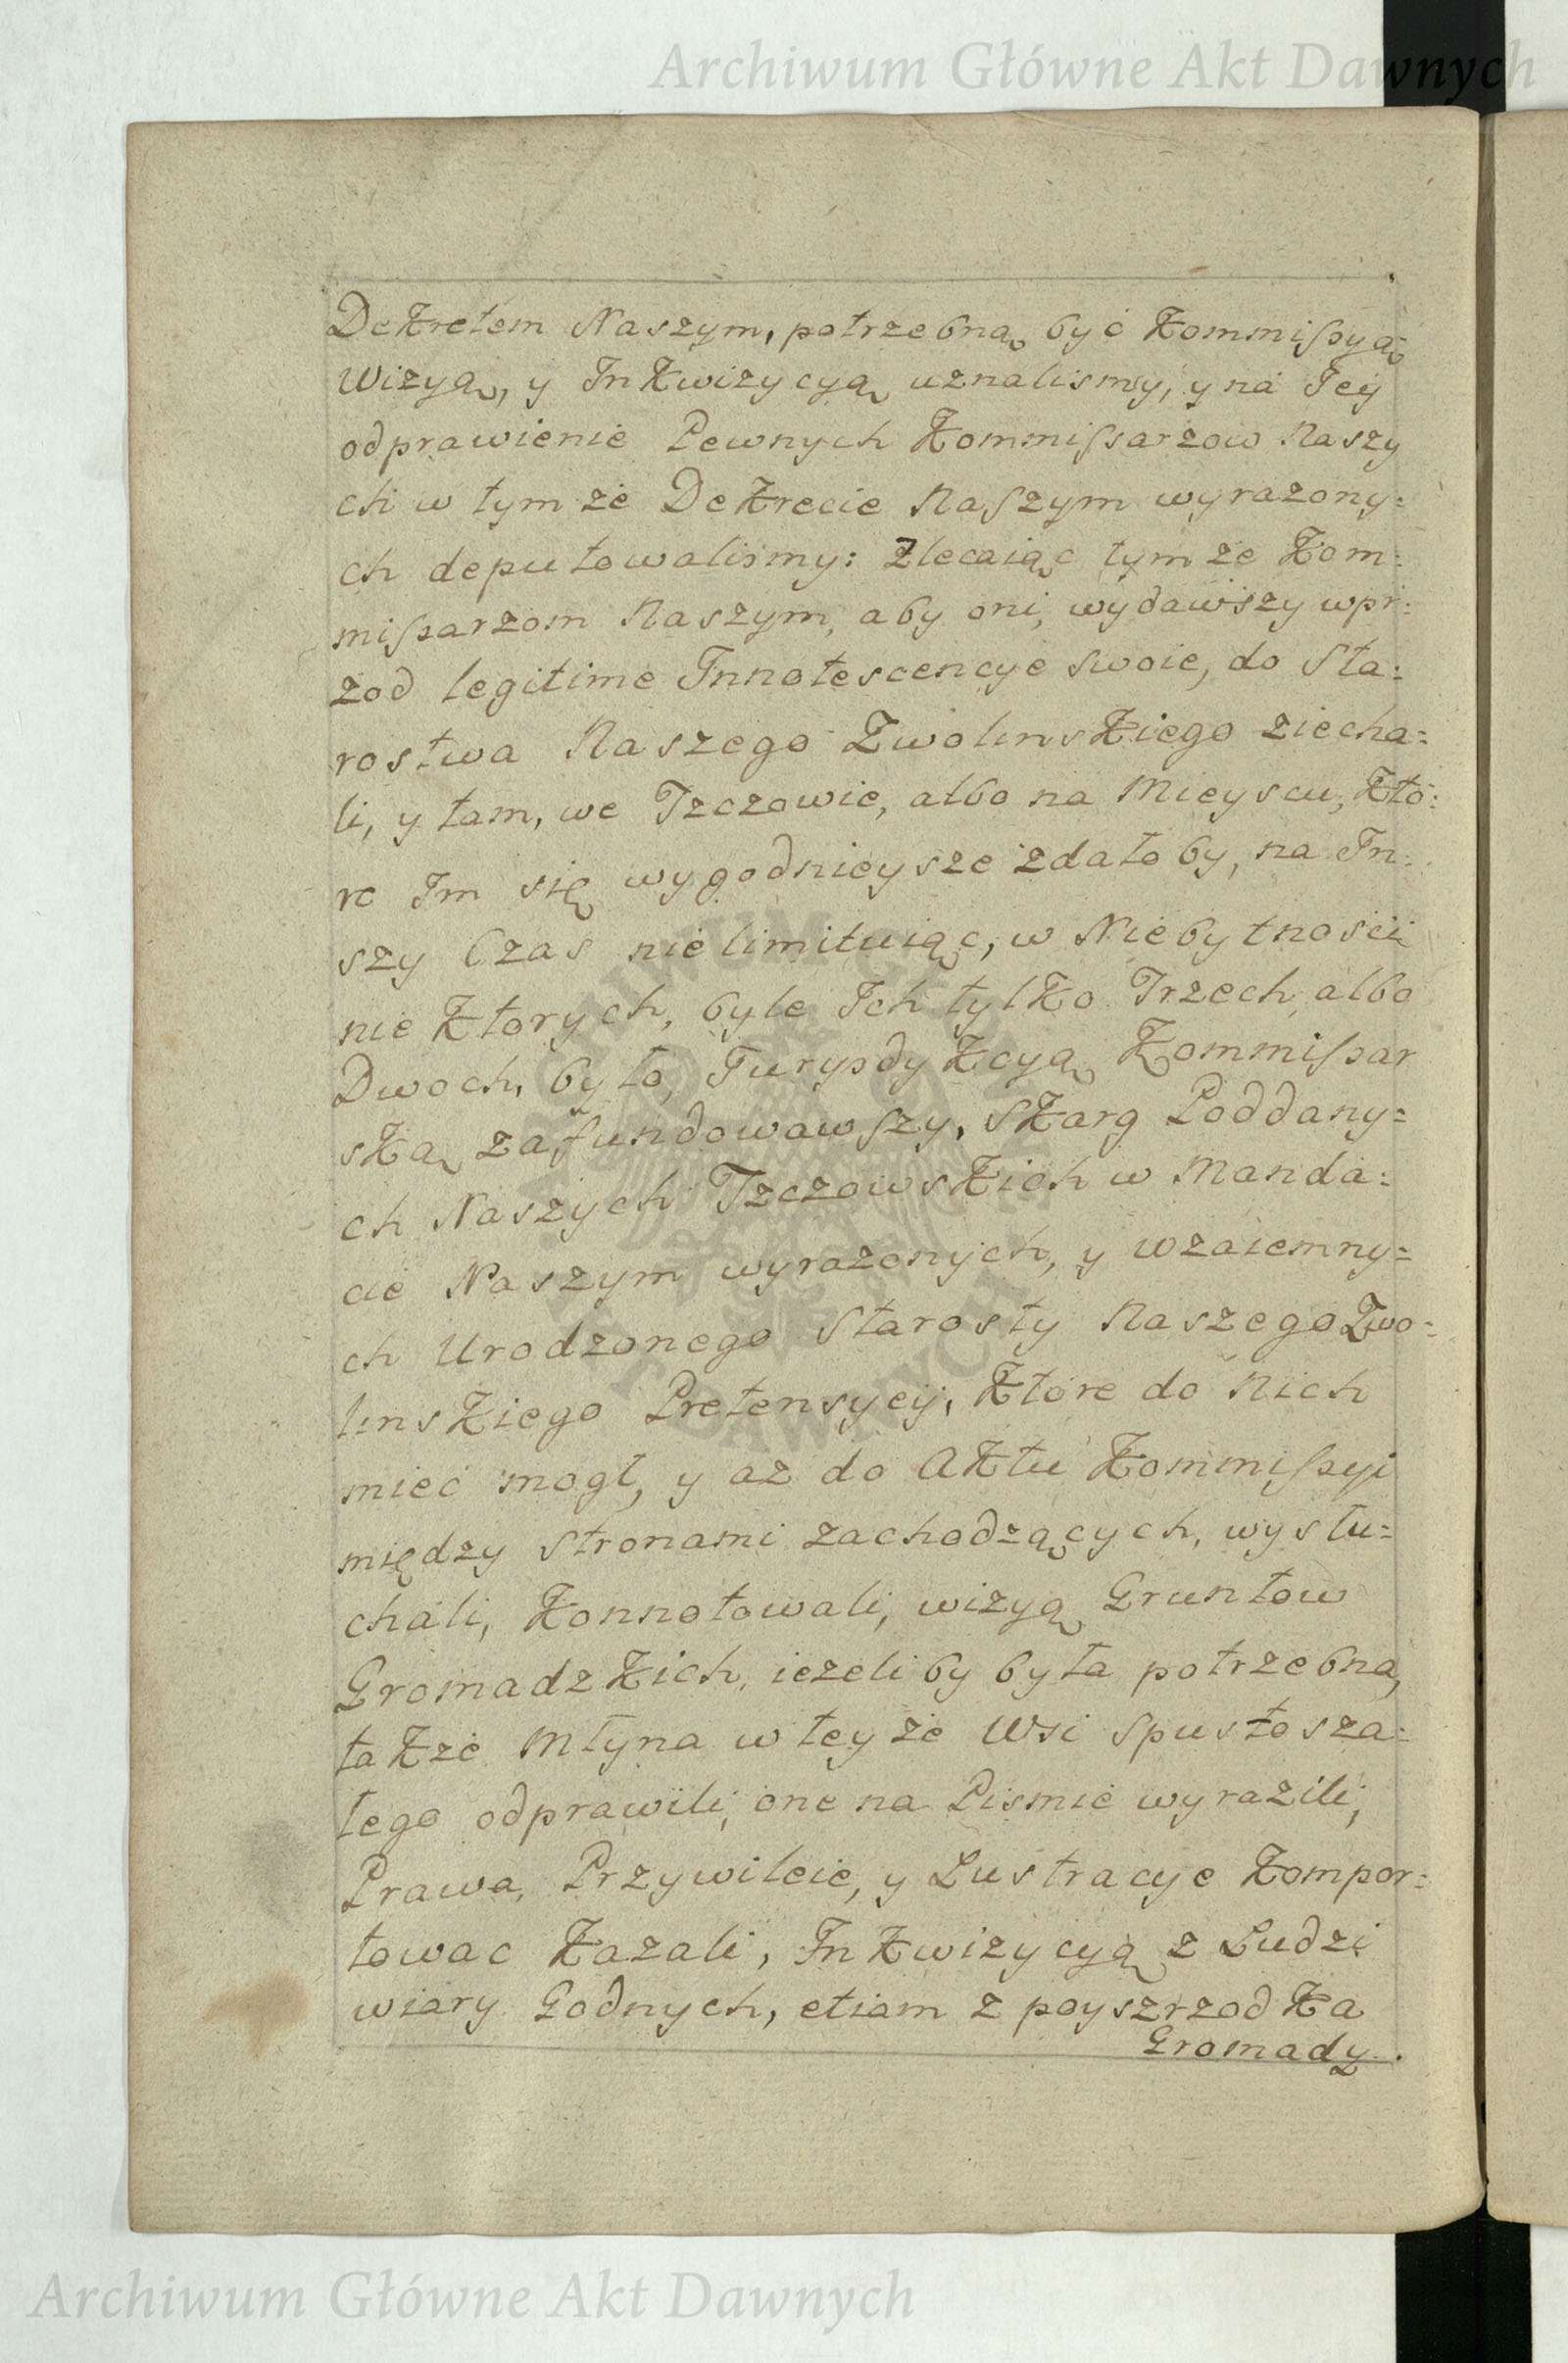 Archiwum Główne Akt Dawnych
DeKretem Naszym, potrzebną być Kommißyą
Wizyą, y InKwizycyą uznalismy, y na Jey
odprawienie Pewnych Kommißarzow Naszy
ch w tymże DeKrecie Naszym wyrazony=
ch deputowalismy: Zlecaiąc tymże Kom=
mißarzom Naszym, aby oni, wydawszy wpr=
zod legitime Innotescencye swoie, do Sta=
rostwa Naszego ZwolinsKiego ziecha=
li, y tam, we Tzczowie, albo na Mieyscu, Kto=
re Im się wygodnieysze zdało by, na In=
szy Czas nielimituiąc, w Niebytnoscii
nieKtorych, byle Ich tylKo Trzech albo
Dwoch, było, JurysdyKcyą Kommißar
sKą zafundowawszy, sKarg Poddany=
ch Naszych TzczowsKich w Manda=
cie Naszym wyrazonych, y wzaiemny=
ch Urodzonego Starosty Naszego Zwo=
linsKiego Pretensyey, Ktore do Nich
mieć mogł, y az do AKtu Kommißyi
między stronami zachodzących, wysłu=
chali, Konnotowali, wizyą Gruntow
GromadzKich, iezeliby była potrzebna,
taKże Młyna w teyże Wsi spustosza=
łego odprawili, one na Pismie wyrazili,
Prawa, Przywileie, y Lustracye Kompor=
towac Kazali, InKwizycyą z Ludzi
wiary Godnych, etiam z poyszrzodKa
Gromady.
ARCHIWUM GŁÓWNE AKT DAWNYCH
Archiwum Główne Akt Dawnych